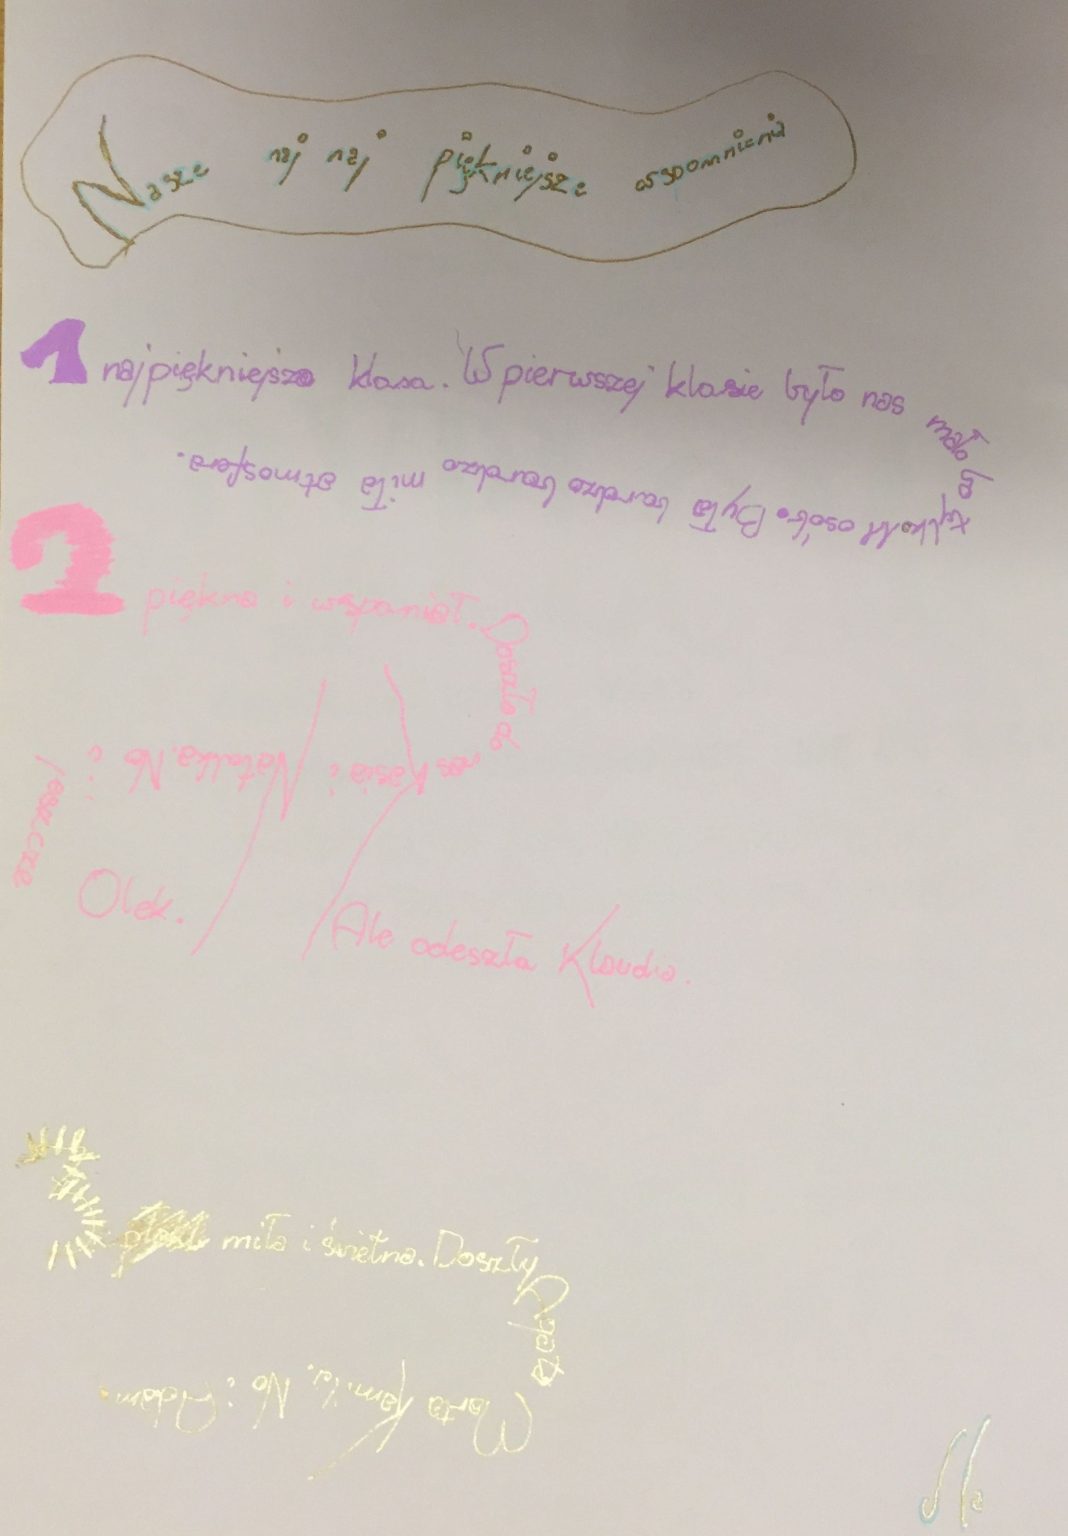 Nasze naj naj piękniejsze wspomnienia
1 najpiękniejsza klasa. W pierwszej klasie było nas mało bo
tylko 11 osób. Była bardzo bardzo miła atmosfera.
2 piękna i wspaniał. Doszło do
nas Kasia i Natalka. No i
jeszcze
Olek.
Ale odeszła Klaudia.
3 miła i świetna. Doszły
Agata
Marta Kamila. No i Adam.